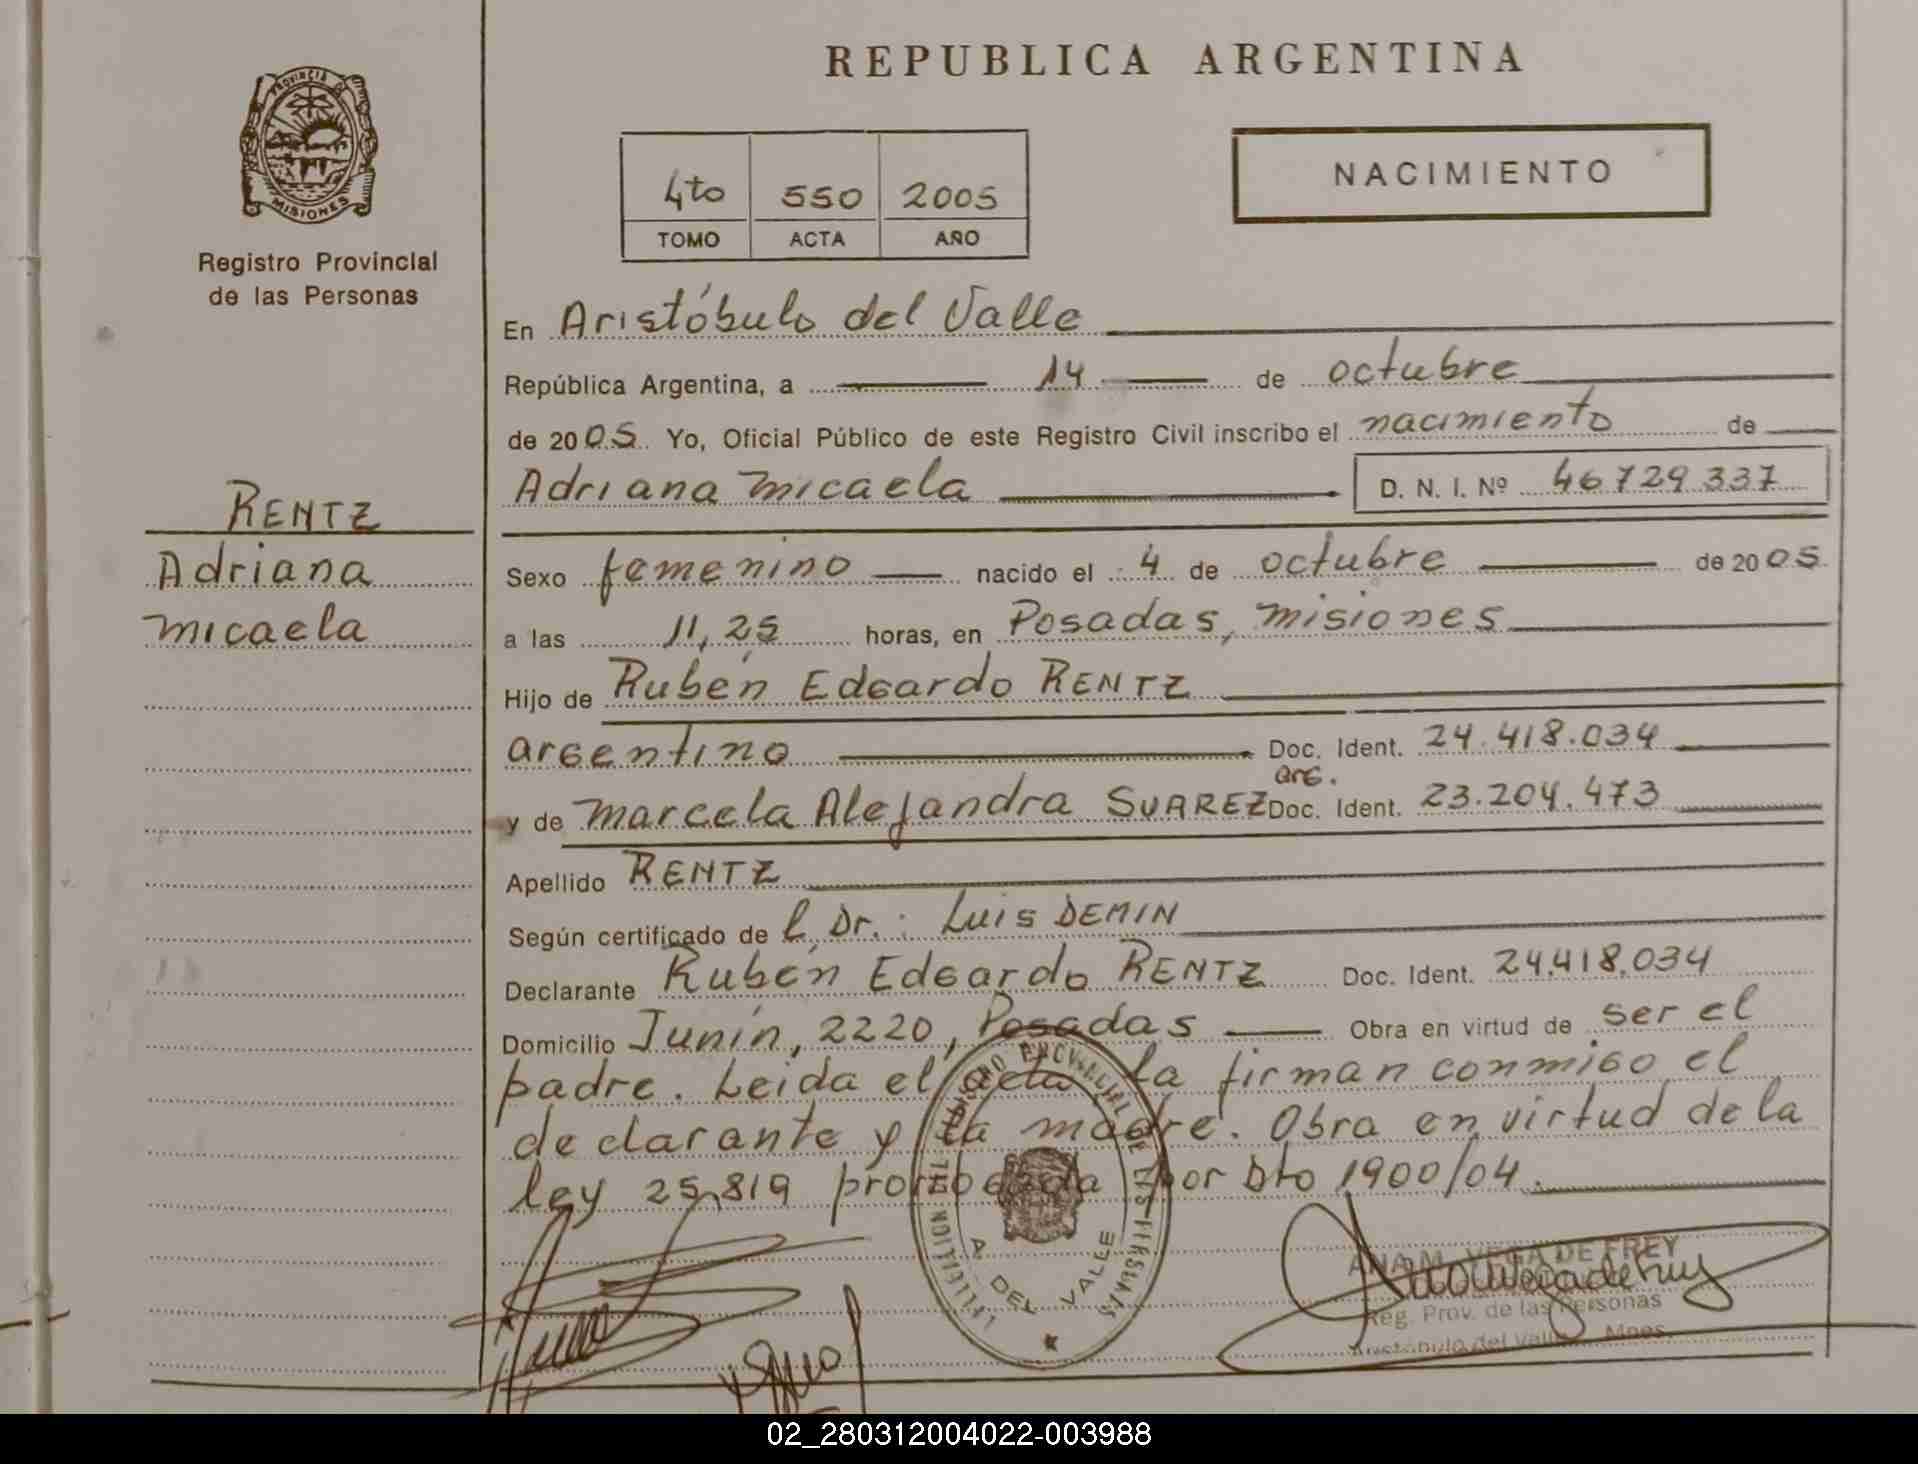 PROVINCIA DE
MISIONES
Registro Provincial
de las Personas
REPUBLICA ARGENTINA
4to 550 2005
TOMO ACTA AÑO
NACIMIENTO
En Aristóbulo del Valle
República Argentina, a 14 de octubre
de 2005 Yo, Oficial Público de este Registro Civil inscribo el nacimiento de
Adriana Micaela D. N. I. Nº 46729337
RENTZ
Adriana
Micaela
Sexo femenino nacido el 4 de octubre de 2005
a las 11,25 horas, en Posadas, Misiones
Hijo de Rubén Edgardo RENTZ
argentino Doc. Ident. 24.418.034
arg.
y de Marcela Alejandra SUAREZ Doc. Ident. 23.204.473
Apellido RENTZ
Según certificado de l Dr.: Luis DEMIN
Declarante Rubén Edgardo RENTZ Doc. Ident. 24.418.034
Domicilio Junín, 2220, Posadas Obra en virtud de ser el
padre. Leida el acta, la firman conmigo el
declarante y la madre. Obra en virtud de la
ley 25,819 prorrogada por Dto 1900/04.
REGISTRO PROVINCIAL DE LAS PERSONAS
DEL VALLE
ANA M. VEGA DE FREY
Reg. Prov. de las Personas
Aristóbulo del Valle Mnes.
02_280312004022-003988